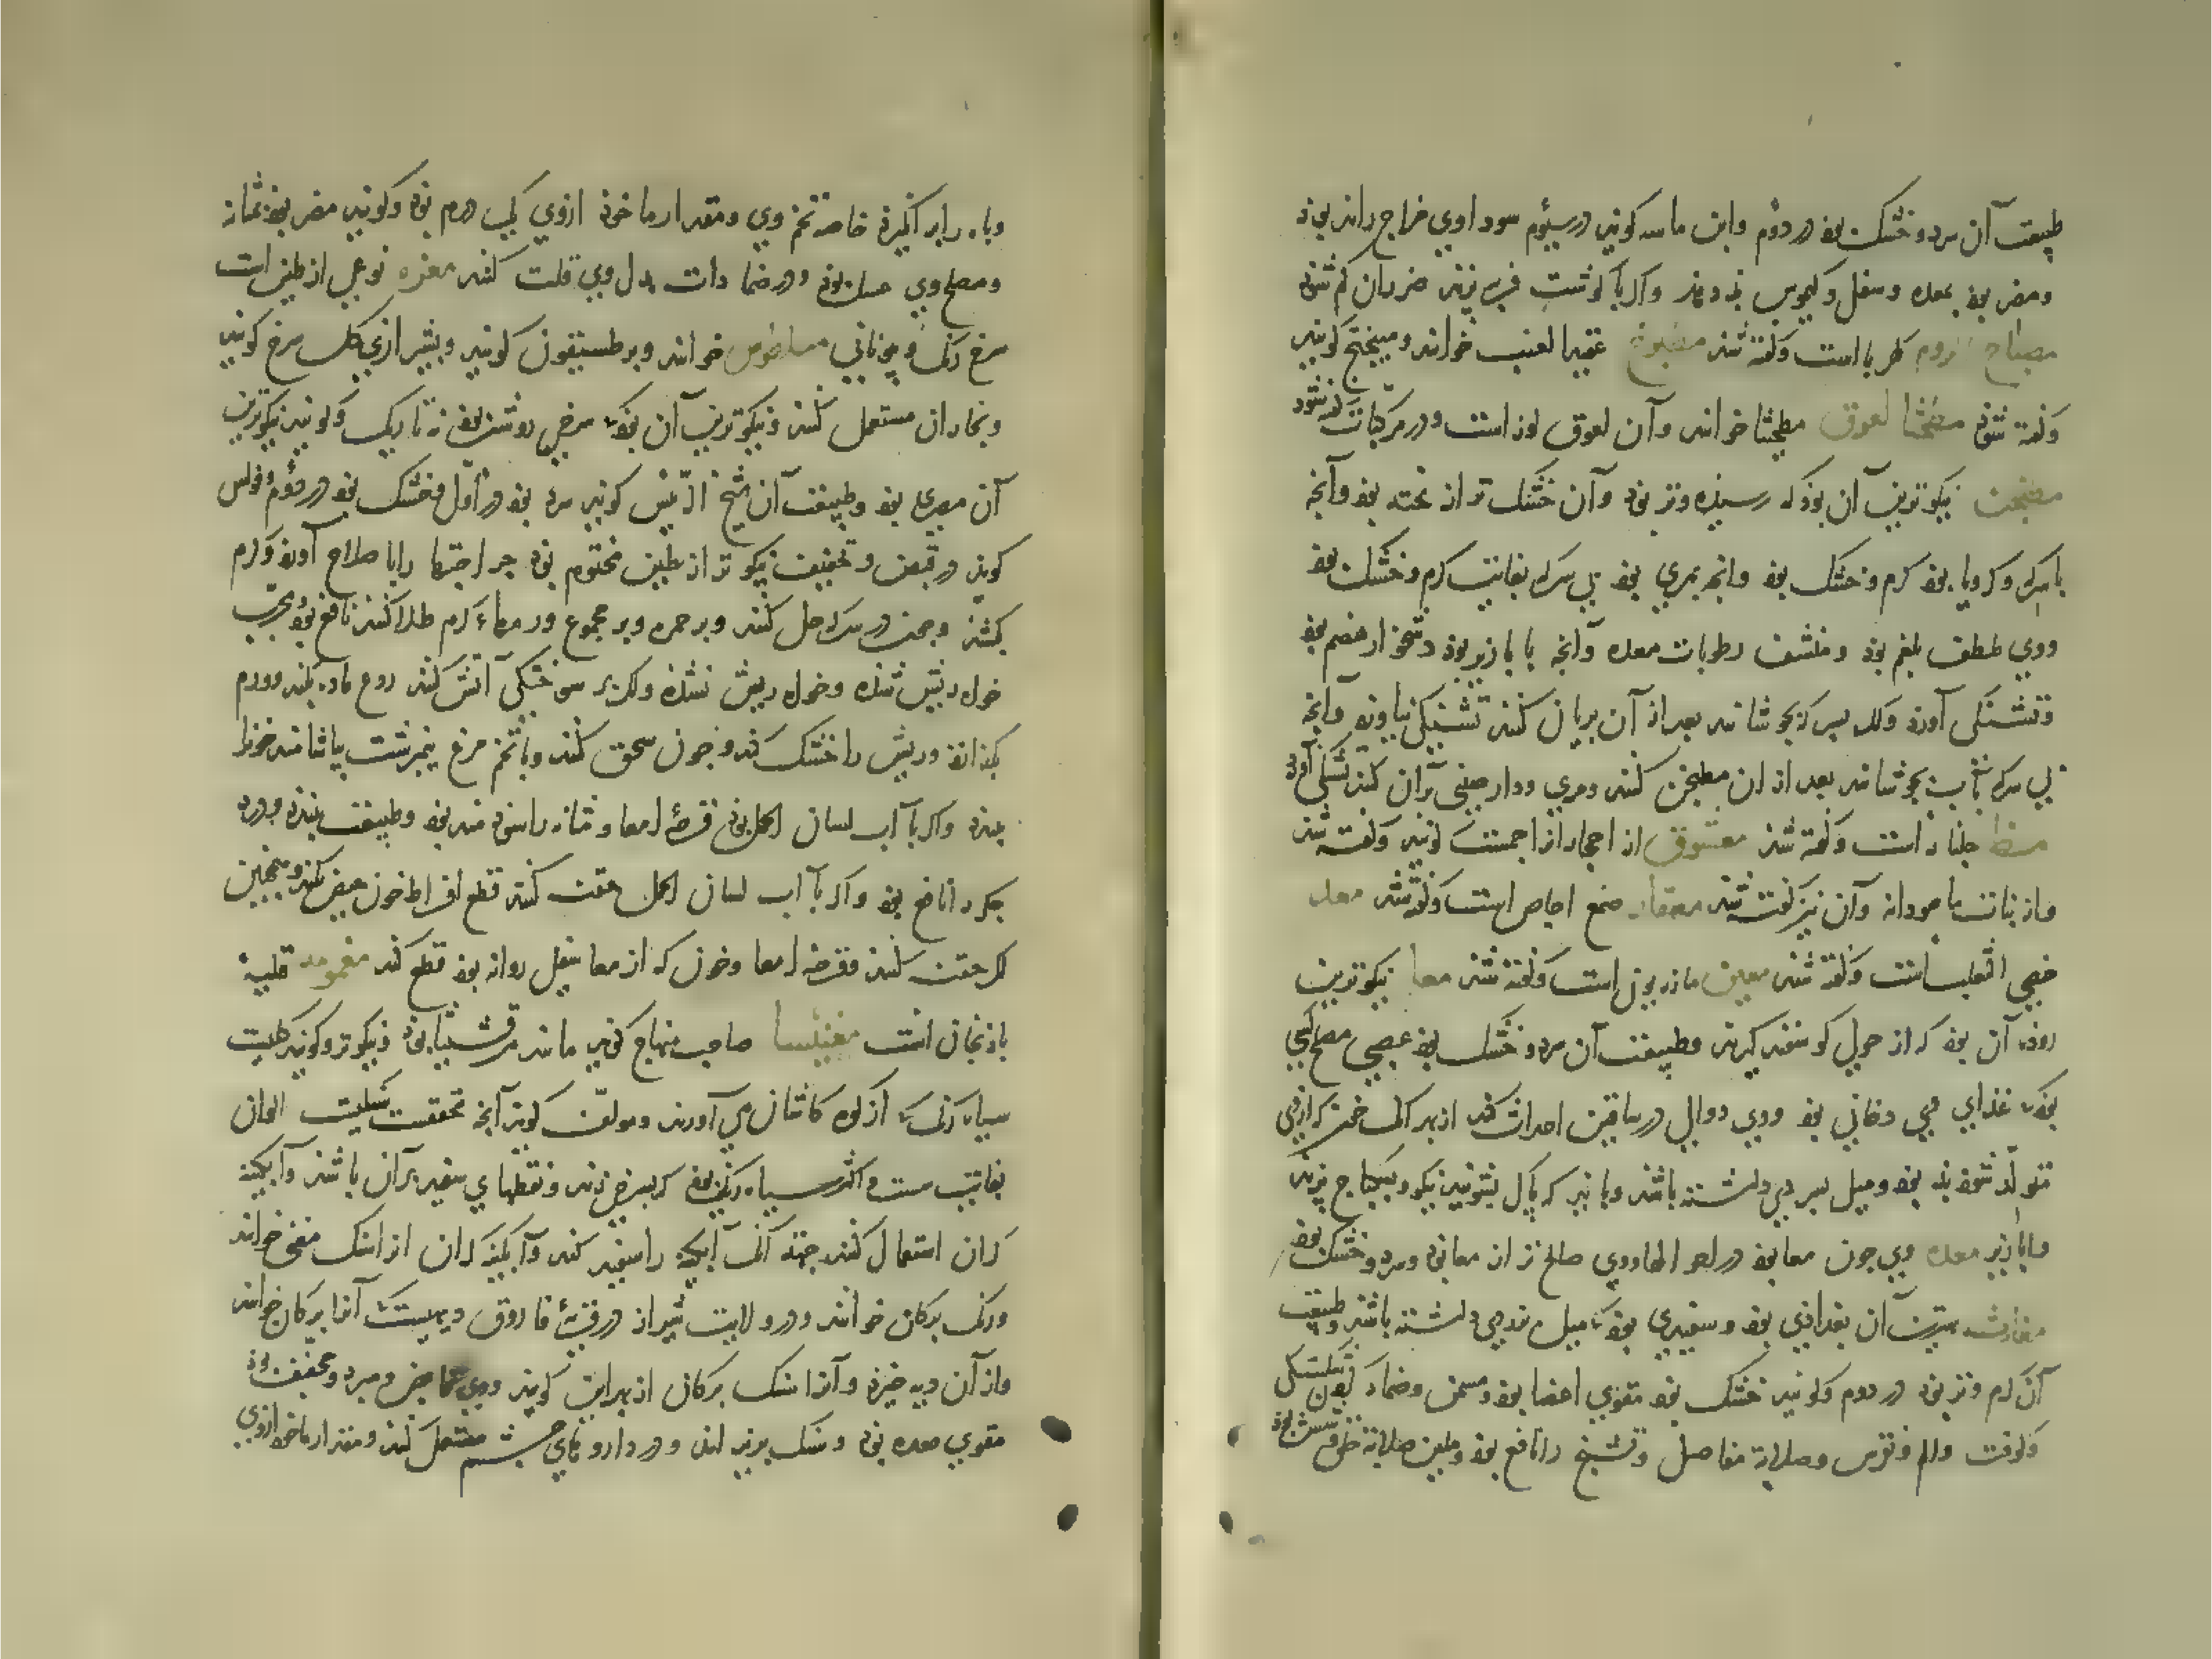 طبیعت آن سرد و خشک بود در دوم و ابن ماسه کویند در سیوم سوداوی مزاج را بد بود
و مضر بود بمعده و سفل و کیموس بد دهد و اکر با کوشت فربه پزند ضرر آن کم شود
مصباح الروم کهربا است و کفته شد مطبوخ عقید العنب خوانند و میبختج کویند
و کفته شود مطجنا لعوق مطجنا خوانند و آن لعوق لوز است و در مرکبات کفته شود
نیکوترین آن بود که رسیده و تر بود و آن خشک تر از پخته بود و آنچه
با سرکه و کرویا بود کرم و خشک بود و آنچه بمری بود بی سرکه بغایت کرم و خشک بود
و وی ملطف بلغم بود و منشف رطوبات معده و آنچه با بازیر بود دشخوار هضم بود
و تشنکی آورد و اکر بسرکه بجوشانند بعد از آن بریان کنند تشنکی نیاورد و آنچه
بی سرکه بآب بجوشانند بعد از ان مطجن کنند و مری و دارچینی بر آن کنند تشنکی آورد
مظ جلنار است و کفته شد معشوق از احجار از اجمست کویند و کفته شد
و از نباتات ماهودانه و آن نیز کفته شد صمغ اجاص است و کفته شد
خصی الثعلب است و کفته شد معین مازریون است و کفته شد معا نیکوترین
روده آن بود که از حولی کوسفند کیرند و طبیعت آن سرد و خشک بود عصبی
بود غذای وی دخانی بود و وی دوالی در ساقین احداث کند از بهر آنک خون که از وی
متولد شود بد بود و میل بسردی داشته باشد و باید که پاک بشویند نیکو و بسکباج پزند
و بابازیر معده وی چون معا بود در احوالها و وی صالح تر از معا بود و سرد و خشک بود
بهترین آن بغدادی بود و سفیدی بود که میل بزردی داشته باشد و طبیعت
آن کرم و تر بود در دوم و کویند خشک بود مقوی اعضا بود و مسمن و ضماد کردن شکستکی
و کوفت و الم و نقرس و صلابة مفاصل و تشنج را نافع بود و ملین صلابة حلق و شش بود
و باه را برانکیزد خاصه تخم وی و مقدار ماخوذ از وی یک درم بود و کویند مضر بود بمثانه
و مصلح وی عسل بود و در ضمادات بدل وی قلت کنند مغره نوعی از طین است
سرخ رنک و بیونانی خوانند و کویند و بشیرازی کل سرخ کویند
و نجاران مستعمل کنند و نیکوترین آن بود که سرخی روشن بود نه تاریک و کویند نیکوترین
آن مصری بود و طبیعت آن شیخ الرئیس کوید سرد بود در اول و خشک بود در دوم و بولس
کوید در قبض و تجفیف نیکوتر از طین مختوم بود جراحتها را باصلاح آورد و کرم
بکشد و چون در سرکه حل کنند و بر حمره و بر مجموع ورمهاء کرم طلا کنند نافع بود مجرب
خواه ریش شده و خواه ریش نشده و اکر بر سوختکی آتش کنند ردع ماده بکند و ورم
بکدازد و ریش را خشک کند و چون سحق کنند و با تخم مرغ نیمرشت بیاشامند خون
ببندد و اکر با آب لسان الحمل بود قرحه امعا و مثانه را سودمند بود و طبیعت ببندد و درد
جکر را نافع بود و اکر با آب لسان الحمل حقنه کنند قطع افراط خون حیض کند و همچنین
اکر حقنه کنند قرحه امعا و خون که از معا سفلی روانه بود قطع کند مغمومه قلیه
بادنجان است مغنیسا صاحب منهاج کوید مانند مرقشیثا بود و نیکوتر و کویند کلیست
سیاه رنک که از کوه کاشان می آورند و مولف کوید آنچه تحقیقست سنکیست الوان
بغایت سست و اکثر سیاه رنک بود که بسرخی زند و نقطهای سفید بر آن باشد و آبکینه
کران استعمال کنند جهة آنک آبکینه را سفید کند و آبکینه کران از سنک مغنی خوانند
و سنک برکان خوانند و در ولایت شیراز در قریه فاروق دیهیست که آنرا برکان خوانند
و از آن دیه خیزد و آنرا سنک برکان از بهر این کویند و وی قابض و مبرد و مجفف بود
مقوی معده بود و سنک بریزاند و در داروهای چشم مستعمل کنند و مقدار ماخوذ از وی